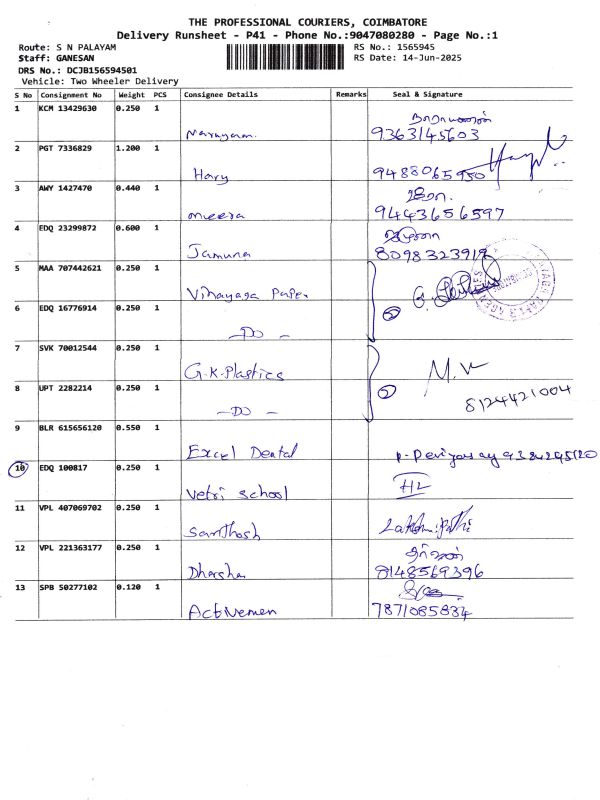 THE PROFESSIONAL COURIERS, COIMBATORE
Delivery Runsheet - P41 - Phone No.:9047080280 - Page No.:1
Route: S N PALAYAM
Staff: GANESAN
DRS No.: DCJB156594501
Vehicle: Two Wheeler Delivery
RS No.: 1565945
RS Date: 14-Jun-2025
S No Consignment No Weight PCS Consignee Details Remarks Seal & Signature
1 KCM 13429630 0.250 1
Narayanan 9363145603
2 PGT 7336829 1.200 1
Hary 9488065950
3 AWY 1427470 0.440 1
meera 9443656597
4 EDQ 23299872 0.600 1
Jamuna 8098323919
5 MAA 707442621 0.250 1
Vinayaga Paper
6 EDQ 16776914 0.250 1
- DO -
7 SVK 70012544 0.250 1
G.K.Plastics
8 UPT 2282214 0.250 1
- DO - 8124421004
9 BLR 615656120 0.550 1
Excel Dental
10 EDQ 100817 0.250 1
Vetri school
11 VPL 407069702 0.250 1
Santhosh
12 VPL 221363177 0.250 1
Dharshan 8148569396
13 SPB 50277102 0.120 1
Activemen 7871085834